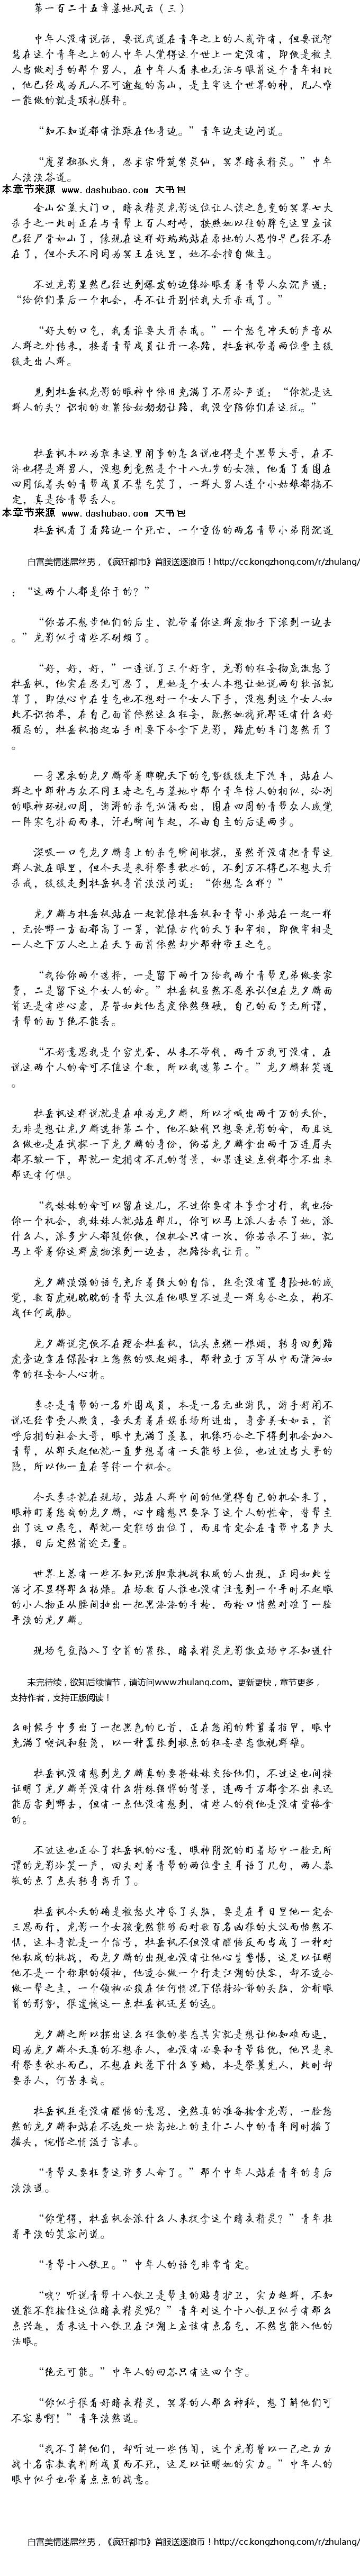 第一百二十五章墓地风云（三）
中年人没有说话，要说武道在青年之上的人或许有，但要说智
慧在这个青年之上的人中年人觉得这个世上一定没有，即使是被主
人当做对手的那个男人，在中年人看来也无法与眼前这个青年相比
，他已经成为凡人不可逾越的高山，是主宰这个世界的神，凡人唯
一能做的就是顶礼膜拜。
“知不知道都有谁跟在他身边。”青年边走边问道。
“魔星独孤火舞，忍术宗师凯紫灵仙，冥界暗夜精灵。”中年
人淡淡答道。
本章节来源 www.dashubao.com 大书包
金山公墓大门口，暗夜精灵龙影这位让人谈之色变的冥界七大
杀手之一此时正在与青帮上百人对峙，按照她以往的脾气这里应该
已经尸骨如山了，像现在这样好端端站在原地的人恐怕早已经不存
在了，但今天不同因为冥王在这里，她不会擅自做主。
不过龙影显然已经达到爆发的边缘冷眼看着青帮人众沉声道：
“给你们最后一个机会，再不让开别怪我大开杀戒了。”
“好大的口气，我看谁要大开杀戒。”一个怒气冲天的声音从
人群之外传来，接着青帮成员让开一条路，杜岳枫带着两位堂主缓
缓走出人群。
见到杜岳枫龙影的眼神中依旧充满了不屑冷声道：“你就是这
群人的头？识相的赶紧给姑奶奶让路，我没空陪你们在这玩。”
杜岳枫本以为敢来这里闹事的怎么说也得是个黑帮大哥，在不
济也得是群男人，没想到竟然是个十八九岁的女孩，他看了看围在
四周低着头的青帮成员不禁气笑了，一群大男人连个小姑娘都搞不
定，真是给青帮丢人。
本章节来源 www.dashubao.com 大书包
杜岳枫看了看路边一个死亡，一个重伤的两名青帮小弟阴沉道
白富美情迷屌丝男，《疯狂都市》首服送逐浪币！http://cc.kongzhong.com/r/zhulang/
：“这两个人都是你干的？”
“你若不想步他们的后尘，就带着你这群废物手下滚到一边去
。”龙影似乎有些不耐烦了。
“好，好，好，”一连说了三个好字，龙影的狂妄彻底激怒了
杜岳枫，他实在忍无可忍了，见她是个女人本想让她说两句软话就
算了，即使心中在生气也不想对一个女人下手，没想到这个女人如
此不识抬举，在自己面前依然这么狂妄，既然她找死那还有什么好
顾忌的，杜岳枫抬起右手刚要下命令下龙影，路虎的车门忽然开了
。
一身黑衣的龙夕麟带着睥睨天下的气势缓缓走下汽车，站在人
群之中那种与众不同王者之气与墓地中那个青年惊人的相似，冷冽
的眼神环视四周，澎湃的杀气汹涌而出，围在四周的青帮众人感觉
一阵寒气扑面而来，汗毛瞬间乍起，不由自主的后退两步。
深吸一口气龙夕麟身上的杀气瞬间收拢，虽然并没有把青帮这
群人放在眼里，但今天是来拜祭季秋水的，不到万不得已不想大开
杀戒，缓缓走到杜岳枫身前淡淡问道：“你想怎么样？”
龙夕麟与杜岳枫站在一起就像杜岳枫和青帮小弟站在一起一样
，无论哪一方面都高了一筹，就像古代的天子和宰相，即使宰相是
一人之下万人之上在天子面前依然却少那种帝王之气。
“我给你两个选择，一是留下两千万给我两个青帮兄弟做安家
费，二是留下这个女人的命。”杜岳枫虽然不愿承认但在龙夕麟面
前还是有些心虚，尽管如此他态度依然强硬，自己的面子无所谓，
青帮的面子绝不能丢。
“不好意思我是个穷光蛋，从来不带钱，两千万我可没有，在
说这两个人的命可不值这个数，所以我选第二个。”龙夕麟轻笑道
。
杜岳枫这样说就是在难为龙夕麟，所以才喊出两千万的天价，
无非是想让龙夕麟选择第二个，他不缺钱只想要龙影的命，而且这
么做也是在试探一下龙夕麟的身份，倘若龙夕麟拿出两千万连眉头
都不皱一下，那就一定拥有不凡的背景，如果连这点钱都拿不出来
那还有何惧。
“我妹妹的命可以留在这儿，不过你要有本事拿才行，我也给
你一个机会，我妹妹人就站在那儿，你可以马上派人去杀了她，派
什么人，派多少人都随你便，但机会只有一次，你若杀不了她，就
马上带着你这群废物滚到一边去，把路给我让开。”
龙夕麟淡漠的语气充斥着强大的自信，丝毫没有置身险地的感
觉，数百虎视眈眈的青帮大汉在他眼里不过是一群乌合之众，构不
成任何威胁。
龙夕麟说完便不在理会杜岳枫，低头点燃一根烟，转身回到路
虎旁边靠在保险杠上悠然的吸起烟来，那种立于万军从中而潇洒如
常的狂妄令人心折。
李亦是青帮的一名外围成员，本是一名无业游民，游手好闲不
说还经常受人欺负，每天看着在娱乐场所进出，身旁美女如云，前
呼后拥的社会大哥，眼中充满了羡慕，机缘巧合之下得到机会加入
青帮，从那天起他就一直梦想着有一天能够上位，也过过当大哥的
隐，所以他一直在等待一个机会。
今天李亦就在现场，站在人群中间的他觉得自己的机会来了，
眼神盯着悠哉的龙夕麟，心中暗想只要取了这个人的性命，替帮主
出了这口恶气，那就一定能够出位了，而且肯定会在青帮中名声大
振，日后定然前途无量。
世界上总有一些不知死活胆敢挑战权威的人出现，正因如此生
活才不显得那么枯燥。在场数百人谁也没有注意到一个平时不起眼
的小人物正从腰间抽出一把黑漆漆的手枪，而枪口悄然对准了一脸
平淡的龙夕麟。
现场气氛陷入了空前的紧张，暗夜精灵龙影傲立场中不知道什
未完待续，欲知后续情节，请访问www.zhulang.com。更新更快，章节更多，
支持作者，支持正版阅读！
么时候手中多出了一把黑色的匕首，正在悠闲的修剪着指甲，眼中
充满了嘲讽和轻蔑，以一种嚣张到极点的狂妄姿态傲视群雄。
杜岳枫没有想到龙夕麟真的要将妹妹交给他们，不过这也间接
证明了龙夕麟并没有什么特殊强悍的背景，连两千万都拿不出来还
能厉害到哪去，但有一点他没有想到，有些人的钱他是没有资格拿
的。
不过这也正合了杜岳枫的心意，眼神阴沉的盯着场中一脸无所
谓的龙影冷笑一声，回头对着青帮的两位堂主耳语了几句，两人恭
敬的点了点头转身离开了。
杜岳枫今天的确是被怒火冲昏了头脑，要是在平日里他一定会
三思而行，龙影一个女孩竟然能够面对数百名凶狠的大汉而怡然不
惧，这本身就是一个信号，杜岳枫不但没有醒悟反而当成了一种对
他权威的挑战，而龙夕麟的出现也没有让他心生警惕，这足以证明
他不是一个称职的领袖，他适合做一个行走江湖的侠客，却不适合
做一帮之主，一个领袖必须在任何情况下保持冷静的头脑，分析眼
前的形势，很遗憾这一点杜岳枫还差的远。
龙夕麟之所以摆出这么狂傲的姿态其实就是想让他知难而退，
因为龙夕麟今天真的不想杀人，也没有必要和青帮结仇，他只是来
拜祭季秋水而已，不想在此惹下什么事端，本是祭奠先人，此时却
要杀人，何苦来哉。
杜岳枫丝毫没有醒悟的意思，竟然真的准备擒拿龙影，一脸悠
然的龙夕麟和站在不远处一块高地上的主仆二人中的青年同时摇了
摇头，惋惜之情溢于言表。
“青帮又要枉费这许多人命了。”那个中年人站在青年的身后
淡淡道。
“你觉得，杜岳枫会派什么人来捉拿这个暗夜精灵？”青年挂
着平淡的笑容问道。
“青帮十八铁卫。”中年人的语气非常肯定。
“哦？听说青帮十八铁卫是帮主的贴身护卫，实力超群，不知
道能不能擒住这位暗夜精灵呢？”青年对这个十八铁卫似乎有那么
点兴趣，看来这十八铁卫在江湖上应该有点名气，不然岂能入他的
法眼。
“绝无可能。”中年人的回答只有这四个字。
“你似乎很看好暗夜精灵，冥界的人那么神秘，想了解他们可
不容易啊！”青年淡然道。
“我不了解他们，却听过一些传闻，这个龙影曾以一己之力力
战十名宗教裁判所成员而不死，这足以证明她的实力。”中年人的
眼中似乎也带着点点的战意。
白富美情迷屌丝男，《疯狂都市》首服送逐浪币！http://cc.kongzhong.com/r/zhulang/